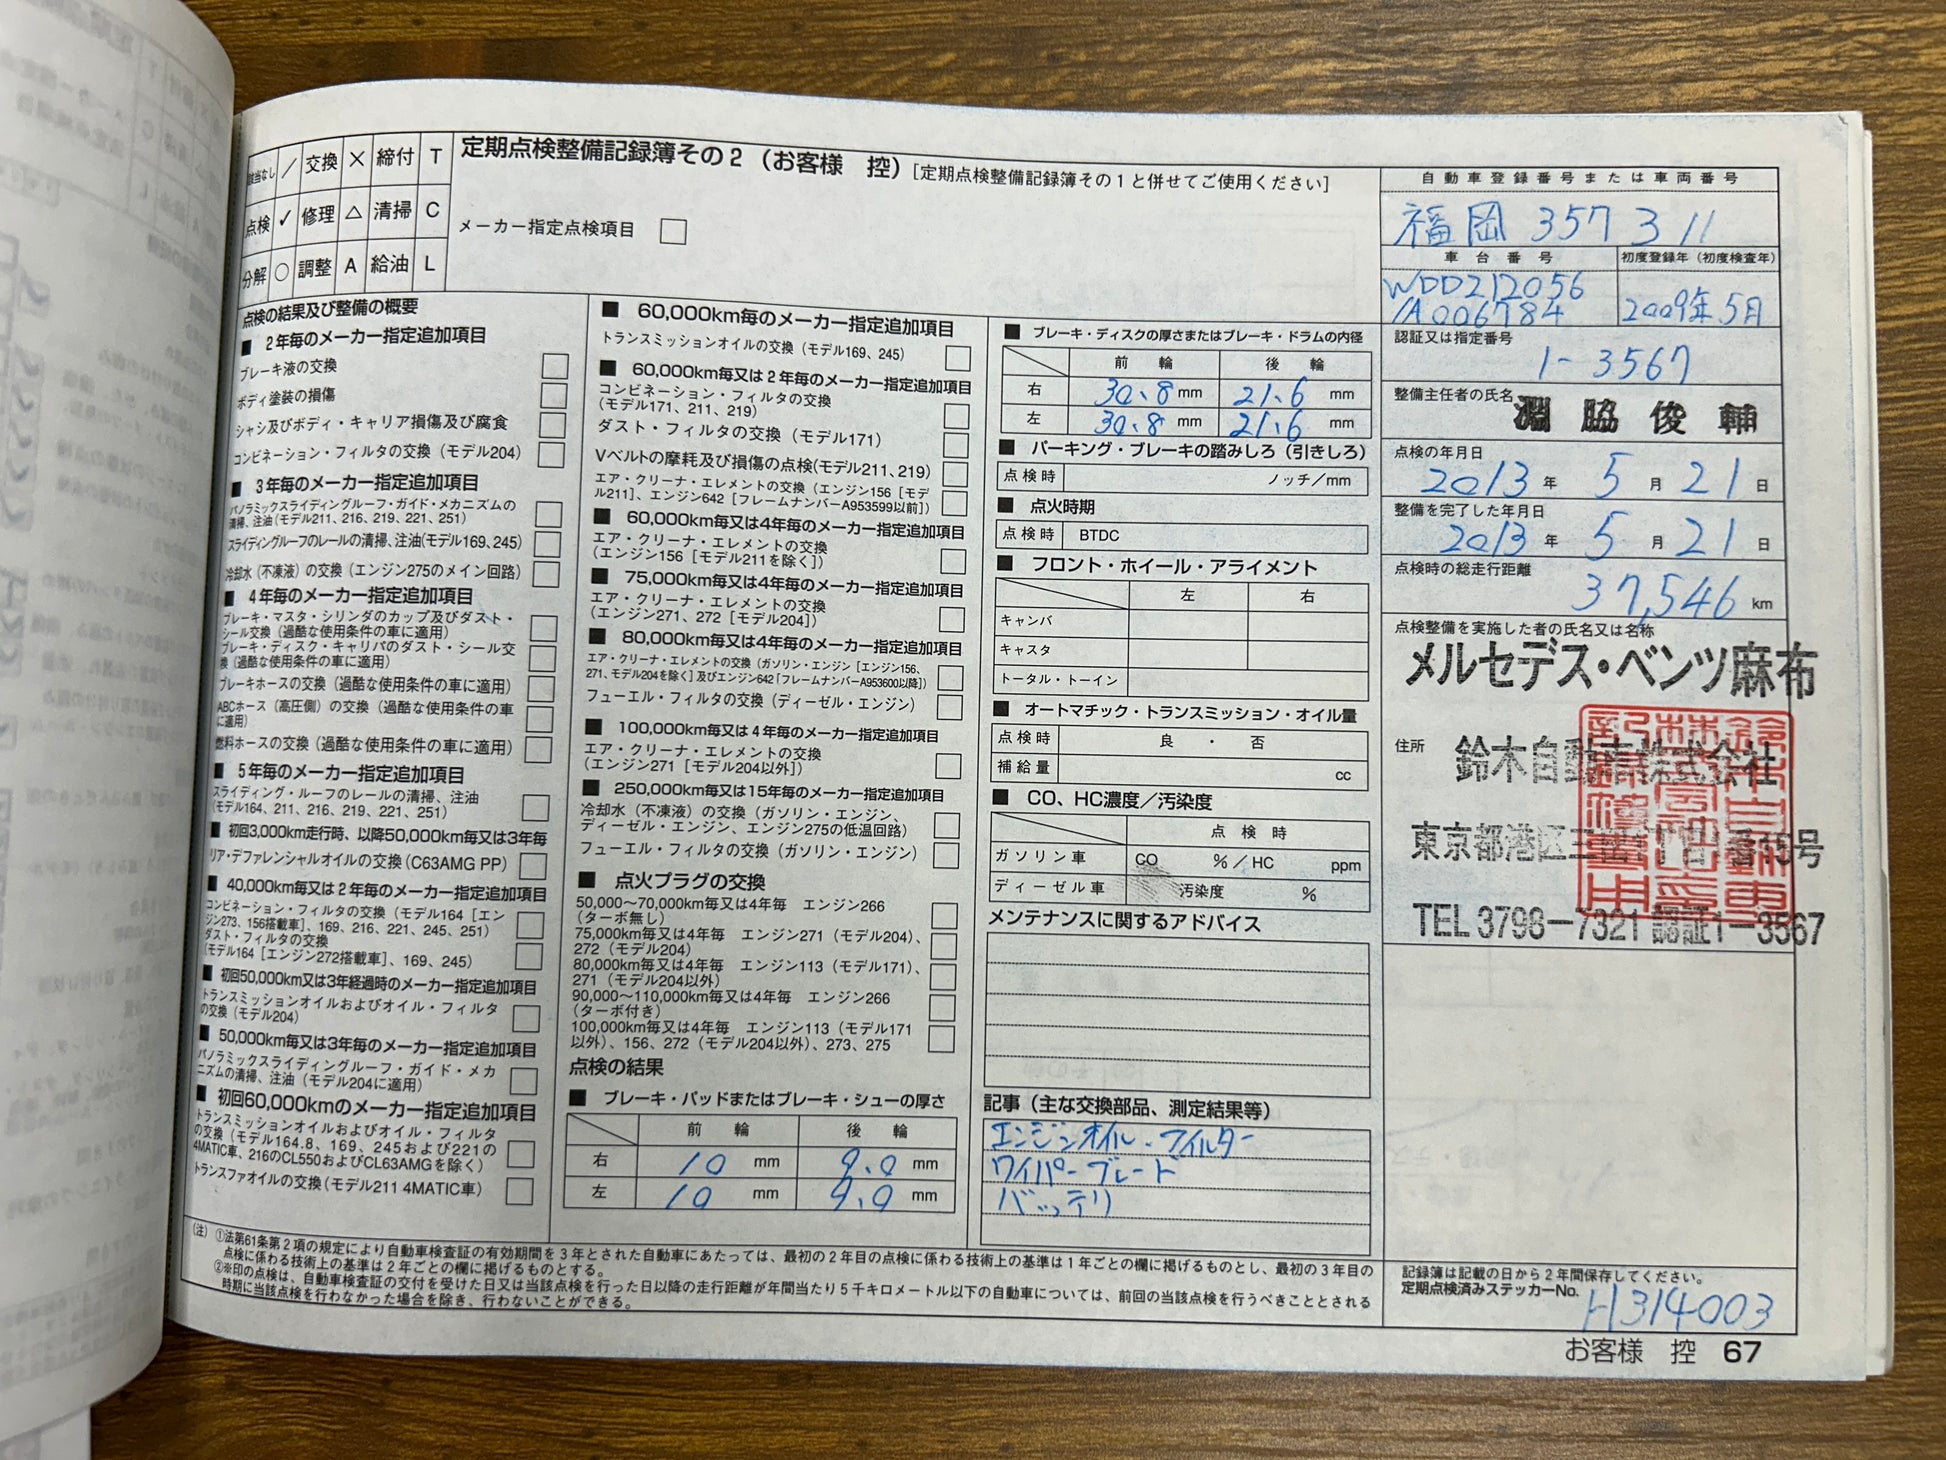 定期点検整備記録簿その2（お客様　控）[定期点検整備記録簿その1と併せてご使用ください]
該当なし ／ 交換 × 締付 T
点検 ✓ 修理 △ 清掃 C
分解 ○ 調整 A 給油 L
メーカー指定点検項目 □
点検の結果及び整備の概要
■ 2年毎のメーカー指定追加項目
ブレーキ液の交換 □
ボディ塗装の損傷 □
シャシ及びボディ・キャリア損傷及び腐食 □
コンビネーション・フィルタの交換（モデル204） □
■ 3年毎のメーカー指定追加項目
パノラミックスライディングルーフ・ガイド・メカニズムの
清掃、注油（モデル211、216、219、221、251） □
スライディングルーフのレールの清掃、注油（モデル169、245） □
冷却水（不凍液）の交換（エンジン275のメイン回路） □
■ 4年毎のメーカー指定追加項目
ブレーキ・マスタ・シリンダのカップ及びダスト・
シール交換（過酷な使用条件の車に適用） □
ブレーキ・ディスク・キャリパのダスト・シール交
換（過酷な使用条件の車に適用） □
ブレーキホースの交換（過酷な使用条件の車に適用） □
ABCホース（高圧側）の交換（過酷な使用条件の車
に適用） □
燃料ホースの交換（過酷な使用条件の車に適用） □
■ 5年毎のメーカー指定追加項目
スライディング・ルーフのレールの清掃、注油
（モデル164、211、216、219、221、251） □
■ 初回3,000km走行時、以降50,000km毎又は3年毎
リア・デファレンシャルオイルの交換（C63AMG PP） □
■ 40,000km毎又は2年毎のメーカー指定追加項目
コンビネーション・フィルタの交換（モデル164［エン
ジン273、156搭載車］、169、216、221、245、251） □
ダスト・フィルタの交換
（モデル164［エンジン272搭載車］、169、245） □
■ 初回50,000km又は3年経過時のメーカー指定追加項目
トランスミッションオイルおよびオイル・フィルタ
の交換（モデル204） □
■ 50,000km毎又は3年毎のメーカー指定追加項目
パノラミックスライディングルーフ・ガイド・メカ
ニズムの清掃、注油（モデル204に適用） □
■ 初回60,000kmのメーカー指定追加項目
トランスミッションオイルおよびオイル・フィルタ
の交換（モデル164.8、169、245および221の
4MATIC車、216のCL550およびCL63AMGを除く） □
トランスファオイルの交換（モデル211 4MATIC車） □
■ 60,000km毎のメーカー指定追加項目
トランスミッションオイルの交換（モデル169、245） □
■ 60,000km毎又は2年毎のメーカー指定追加項目
コンビネーション・フィルタの交換
（モデル171、211、219） □
ダスト・フィルタの交換（モデル171） □
Vベルトの摩耗及び損傷の点検（モデル211、219） □
エア・クリーナ・エレメントの交換（エンジン156［モデ
ル211］、エンジン642［フレームナンバーA953599以前］） □
■ 60,000km毎又は4年毎のメーカー指定追加項目
エア・クリーナ・エレメントの交換
（エンジン156［モデル211を除く］） □
■ 75,000km毎又は4年毎のメーカー指定追加項目
エア・クリーナ・エレメントの交換
（エンジン271、272［モデル204］） □
■ 80,000km毎又は4年毎のメーカー指定追加項目
エア・クリーナ・エレメントの交換（ガソリン・エンジン［エンジン156、
271、モデル204を除く］及びエンジン642［フレームナンバーA953600以降］） □
フューエル・フィルタの交換（ディーゼル・エンジン） □
■ 100,000km毎又は4年毎のメーカー指定追加項目
エア・クリーナ・エレメントの交換
（エンジン271［モデル204以外］） □
■ 250,000km毎又は15年毎のメーカー指定追加項目
冷却水（不凍液）の交換（ガソリン・エンジン、
ディーゼル・エンジン、エンジン275の低温回路） □
フューエル・フィルタの交換（ガソリン・エンジン） □
■ 点火プラグの交換
50,000～70,000km毎又は4年毎　エンジン266
（ターボ無し） □
75,000km毎又は4年毎　エンジン271（モデル204）、
272（モデル204） □
80,000km毎又は4年毎　エンジン113（モデル171）、
271（モデル204以外） □
90,000～110,000km毎又は4年毎　エンジン266
（ターボ付き） □
100,000km毎又は4年毎　エンジン113（モデル171
以外）、156、272（モデル204以外）、273、275 □
点検の結果
■ ブレーキ・パッドまたはブレーキ・シューの厚さ
前　輪 後　輪
右 10 mm 9.0 mm
左 10 mm 9.0 mm
■ ブレーキ・ディスクの厚さまたはブレーキ・ドラムの内径
前　輪 後　輪
右 30.8 mm 21.6 mm
左 30.8 mm 21.6 mm
■ パーキング・ブレーキの踏みしろ（引きしろ）
点検時 ノッチ/mm
■ 点火時期
点検時 BTDC
■ フロント・ホイール・アライメント
左 右
キャンバ
キャスタ
トータル・トーイン
■ オートマチック・トランスミッション・オイル量
点検時 良 ・ 否
補給量 cc
■ CO、HC濃度／汚染度
点検時
ガソリン車 CO %／HC ppm
ディーゼル車 汚染度 %
メンテナンスに関するアドバイス
記事（主な交換部品、測定結果等）
エンジンオイル・フィルター
ワイパーブレード
バッテリ
自動車登録番号または車両番号
福岡 357 3 11
車台番号 初度登録年（初度検査年）
WDD212056
1A006784 2009年5月
認証又は指定番号
1-3567
整備主任者の氏名 淵脇俊輔
点検の年月日
2013 年 5 月 21 日
整備を完了した年月日
2013 年 5 月 21 日
点検時の総走行距離
37,546 km
点検整備を実施した者の氏名又は名称
メルセデス・ベンツ麻布
住所 鈴木自動車株式会社
東京都港区三田1丁目 番15号
TEL 3798-7321 認証1-3567
記録簿は記載の日から2年間保存してください。
定期点検済みステッカーNo.
H314003
（注）①法第61条第2項の規定により自動車検査証の有効期間を3年とされた自動車にあたっては、最初の2年目の点検に係わる技術上の基準は1年ごとの欄に掲げるものとし、最初の3年目の
点検に係わる技術上の基準は2年ごとの欄に掲げるものとする。
②※印の点検は、自動車検査証の交付を受けた日又は当該点検を行った日以降の走行距離が年間当たり5千キロメートル以下の自動車については、前回の当該点検を行うべきこととされる
時期に当該点検を行わなかった場合を除き、行わないことができる。
お客様　控 67